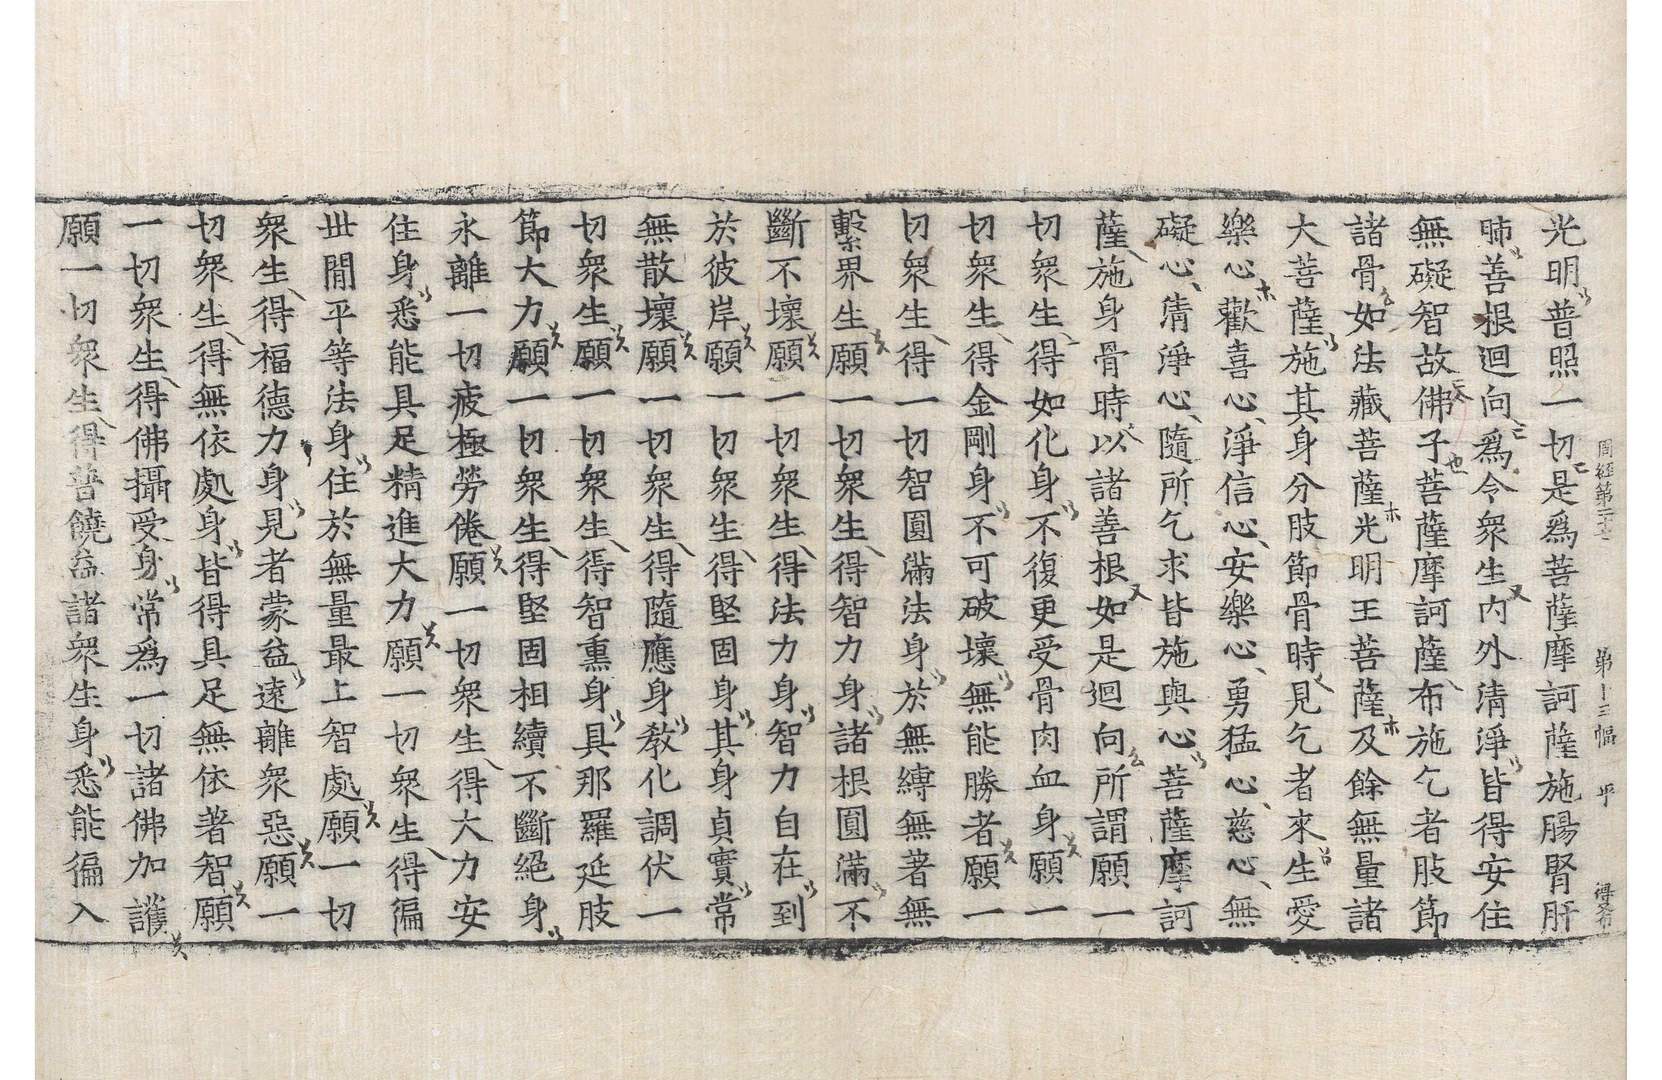 周經第二十七 第十三幅 平 得有
光明普照一切是爲菩薩摩訶薩施腸腎肝
肺善根迴向爲令衆生內外清淨皆得安住
無礙智故佛子菩薩摩訶薩布施乞者肢節
諸骨如法藏菩薩光明王菩薩及餘無量諸
大菩薩施其身分肢節骨時見乞者來生愛
樂心歡喜心淨信心安樂心勇猛心慈心無
礙心清淨心隨所乞求皆施與心菩薩摩訶
薩施身骨時以諸善根如是迴向所謂願一
切衆生得如化身不復更受骨肉血身願一
切衆生得金剛身不可破壞無能勝者願一
切衆生得一切智圓滿法身於無縛無著無
繫界生願一切衆生得智力身諸根圓滿不
斷不壞願一切衆生得法力身智力自在到
於彼岸願一切衆生得堅固身其身貞實常
無散壞願一切衆生得隨應身教化調伏一
切衆生願一切衆生得智熏身具那羅延肢
節大力願一切衆生得堅固相續不斷絕身
永離一切疲極勞倦願一切衆生得大力安
住身悉能具足精進大力願一切衆生得徧
世閒平等法身住於無量最上智處願一切
衆生得福德力身見者蒙益遠離衆惡願一
切衆生得無依處身皆得具足無依著智願
一切衆生得佛攝受身常爲一切諸佛加護
願一切衆生得普饒益諸衆生身悉能徧入